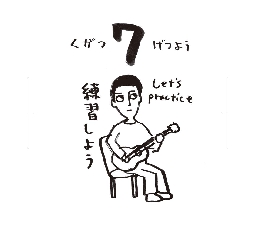 くがつ 7 げつよう
練習しよう
Let's
practice